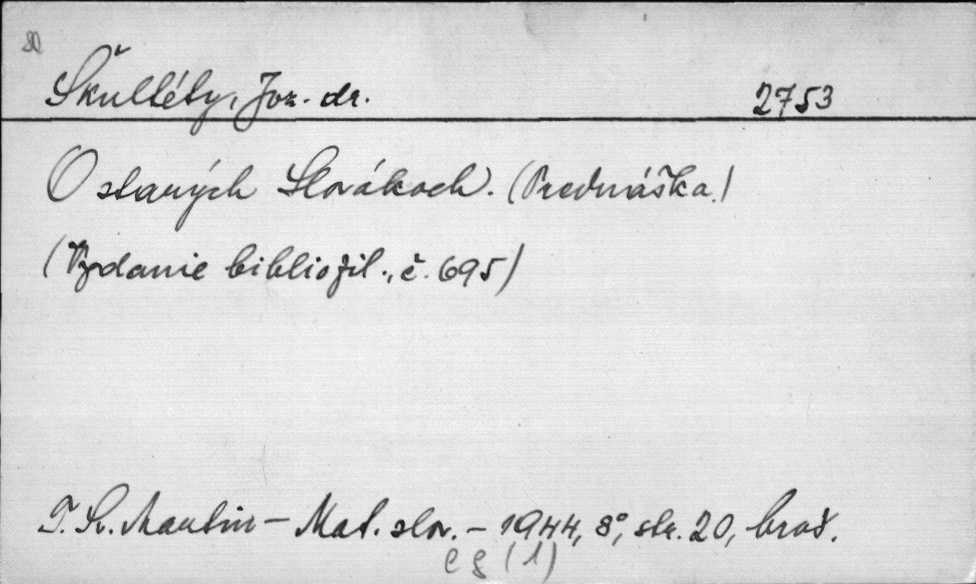 Škultéty, Joz. dr. 2753
O starých Slovákoch. (Prednáška.)
(Vydanie bibliofil., č. 695)
T. Sv. Martin - Mat. slov. - 1944, 8°, str. 20, brož.
(1)